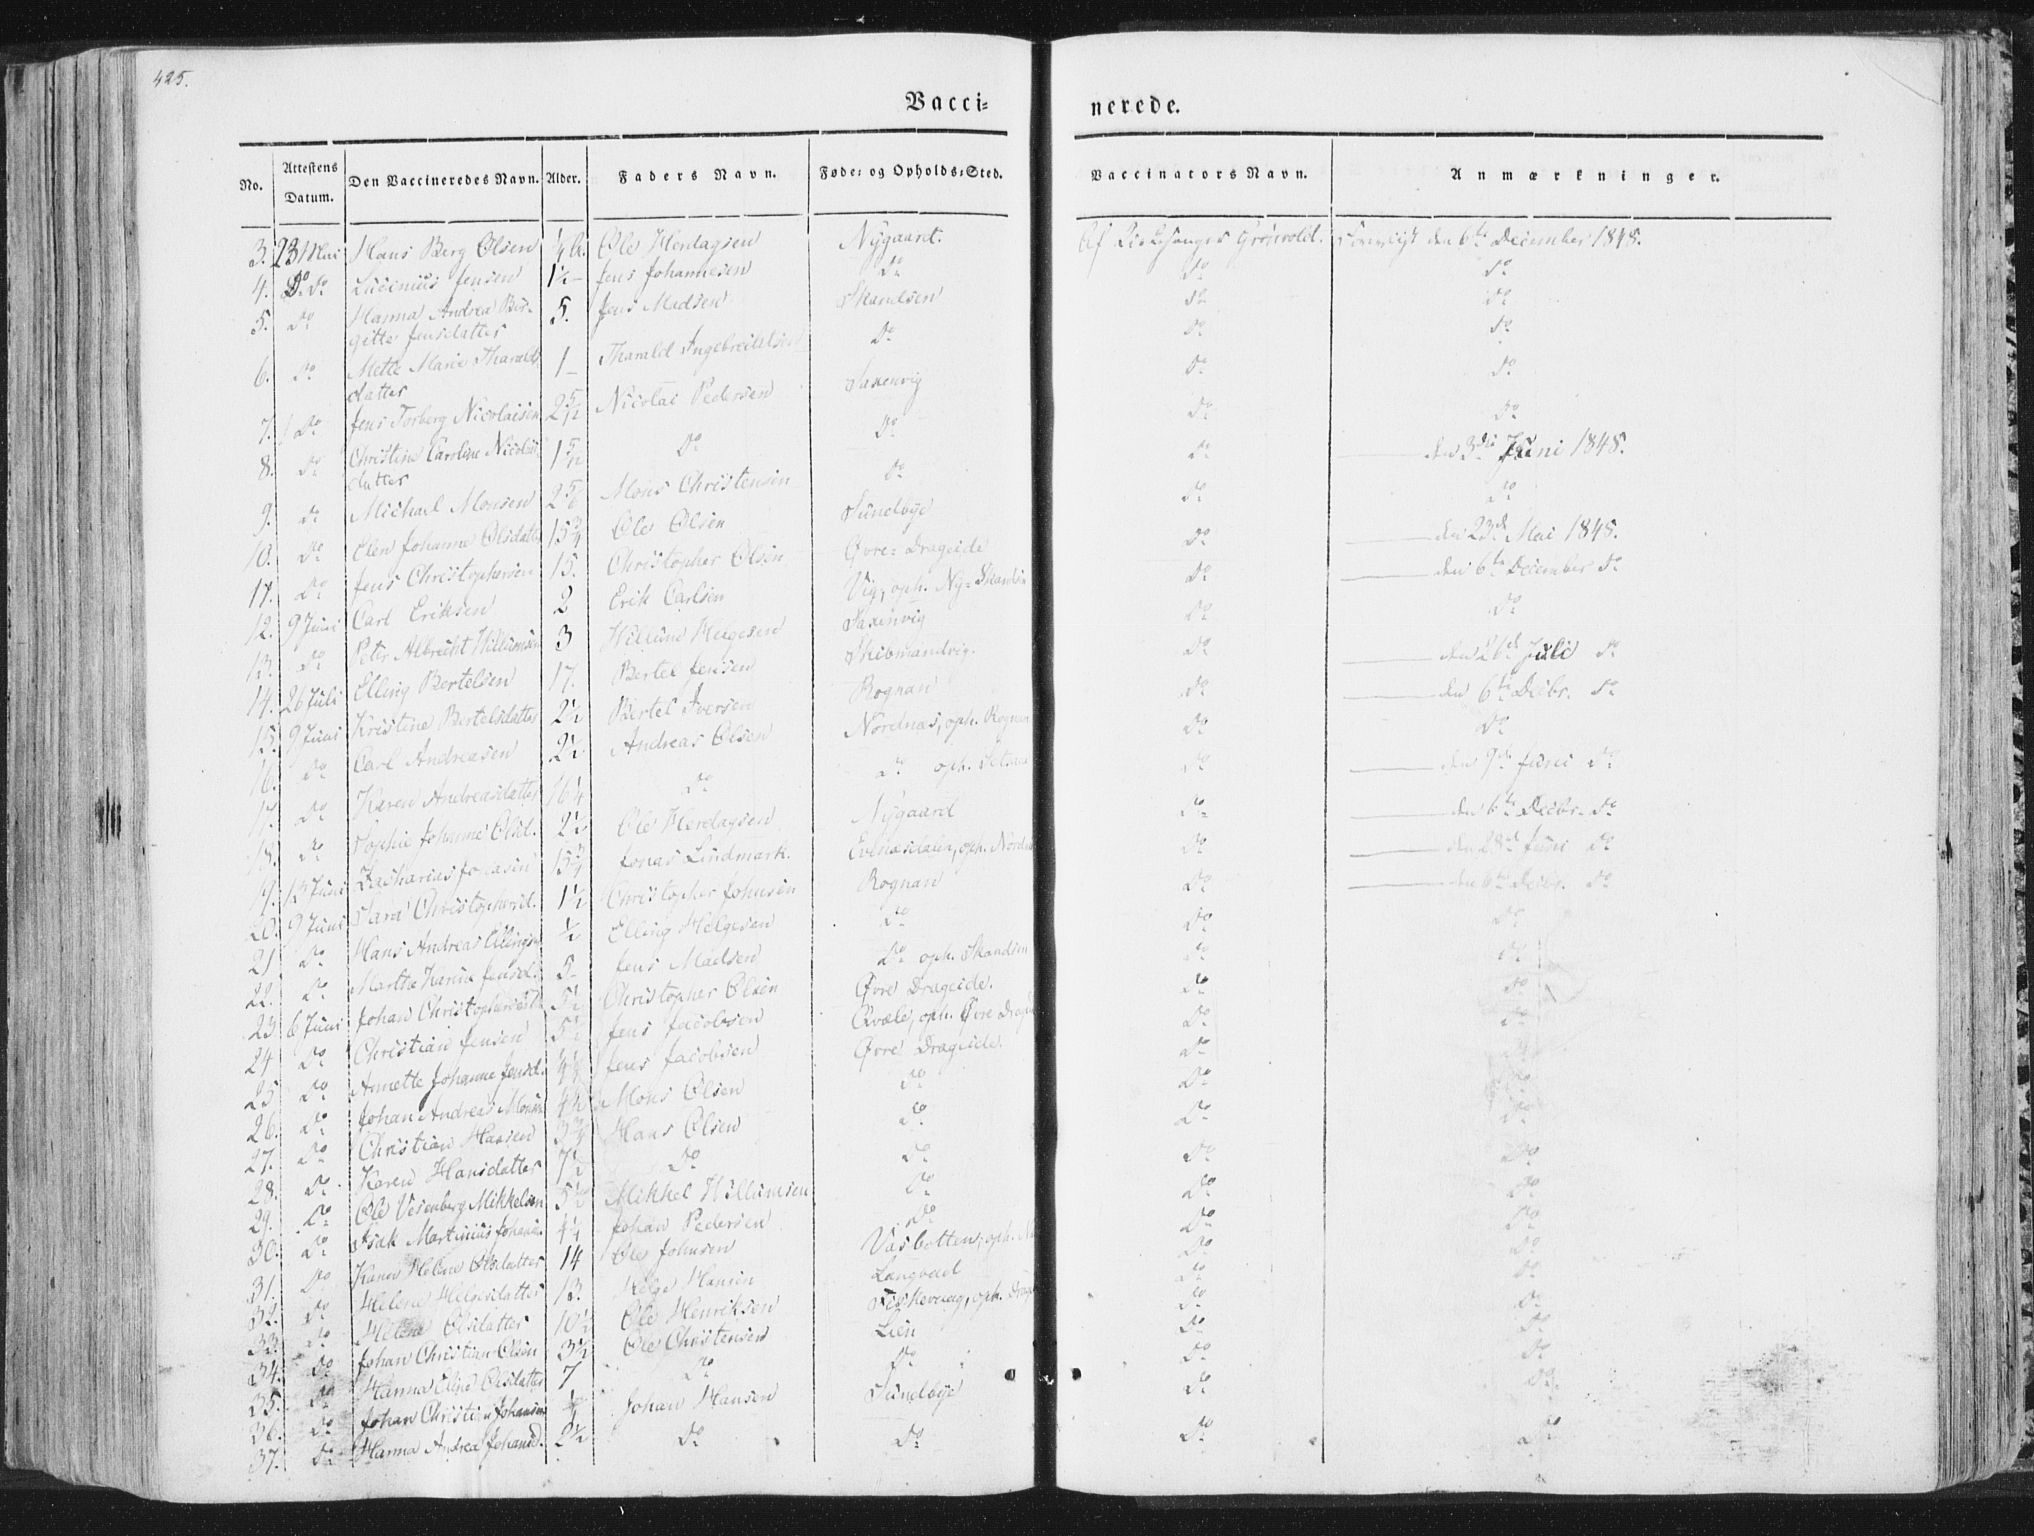 425.
Vacci= nerede.
No. Attestens Datum. Den Vaccineredes Navn. Alder. Faders Navn. Føde= og Opholds=Sted. Vaccinators Navn. Anmærkninger.
3. 23 Mai Hans Berg Olsen 1/4 A. Ole Herdagsen Nygaard. Af Grönvold. den 6te December 1848.
4. Do Do Lucinius Jensen 1 1/2 Jens Johannesen Do Do Do
5. Do Hanna Andrea Ber- 5. Jens Madsen Skandsen Do Do
gitte Jensdatter
6. Do Mette Marie Tharalds 1 Tharald Ingebreithsen Do Do Do
datter
7. Do Jens Torberg Nicolaisen 2 5/12 Nicolai Pedersen Saxenvig Do Do
8. Do Christine Caroline Nicolai 1 5/12 Do Do Do Do
datter
9. Do Michael Monsen 2 5/6 Mons Christensen Do Do den 3die Juni 1848.
10. Do Elen Johanne Olsdatter 15 3/4 Ole Olsen Sundbye Do Do
11. Do Jens Christophersen 15. Christopher Olsen Øvre=Drageide Do den 23de Mai 1848.
12. 9 Juni Carl Eriksen 2 Erik Carlsen Vig, oph. Ny=Skandsen Do den 6te December Do
13. Do Peter Albrecht Willumsen 3 Willum Helgesen Saxenvig Do Do
14. 26 Juli Elling Bertelsen 17. Bertel Jensen Skibmandvig. Do den 26de Juli Do
15. 9 Juni Kristine Bertelsdatter 2 1/2 Bertel Iversen Rognan Do den 6te Decbr. Do
16. Do Carl Andreasen 2 1/2 Andreas Olsen Nordnæs, oph. Rognan Do Do
17. Do Karen Andreasdatter 16 1/4 Do Do oph. Do den 9de Juni Do
18. Do Sophie Johanne Olsd. 2 1/2 Ole Herdagsen Nygaard Do den 6te Decbr. Do
19. 13 Juni Zacharias Jonasen 13 3/4 Jonas Lindmark. Evenesdalen, oph. Nordnæs Do den 28de Juni Do
20. 9 Juni Sara Christophersd. 1 1/2 Christopher Johnsen Rognan Do den 6te Decbr. Do
21 Do Hans Andreas Ellingsen 1/2 Elling Helgesen Do Do Do
22. Do Marthe Karine Jensd. 5 Jens Madsen Do oph. Skandsen Do Do
23 6 Juni Johan Christophersen 5 1/2 Christopher Olsen Øvre Drageide. Do Do
24 Do Christian Jensen 5 1/2 Jens Jacobsen Qvæle, oph. Øvre Drageide Do Do
25 Do Annette Johanne Jensd. 4 1/4 Jens Jacobsen Øvre Drageide. Do Do
26. Do Johan Andreas Monsen 4 1/2 Mons Olsen Do Do Do
27. Do Christian Hansen 3 3/4 Hans Olsen Do Do Do
28. Do Karen Hansdatter 7 1/2 Do Do Do Do
29. Do Ole Vesenberg Mikkelsen 5 1/2 Mikkel Willumsen Do Do Do
30. Do Isak Martinius Johansen 4 1/4 Johan Pedersen Do Do Do
31. Do Karen Helene Olsdatter 14 Ole Johnsen Vasbotten, oph. Do Do
32. Do Helene Helgesdatter 13. Helge Hansen Langvad Do Do
33. Do Helene Olsdatter 10 1/2 Ole Henriksen Fiskevaag, oph. Do Do
34. Do Johan Christian Olsen 3 1/2 Ole Christensen Lien Do Do
35. Do Hanna Eline Olsdatter 7 Do Do Do Do
36. Do Johan Christian Johansen Johan Hansen Sundbye Do Do
37. Do Hanna Andrea Johansd. 2 1/2 Do Do Do Do